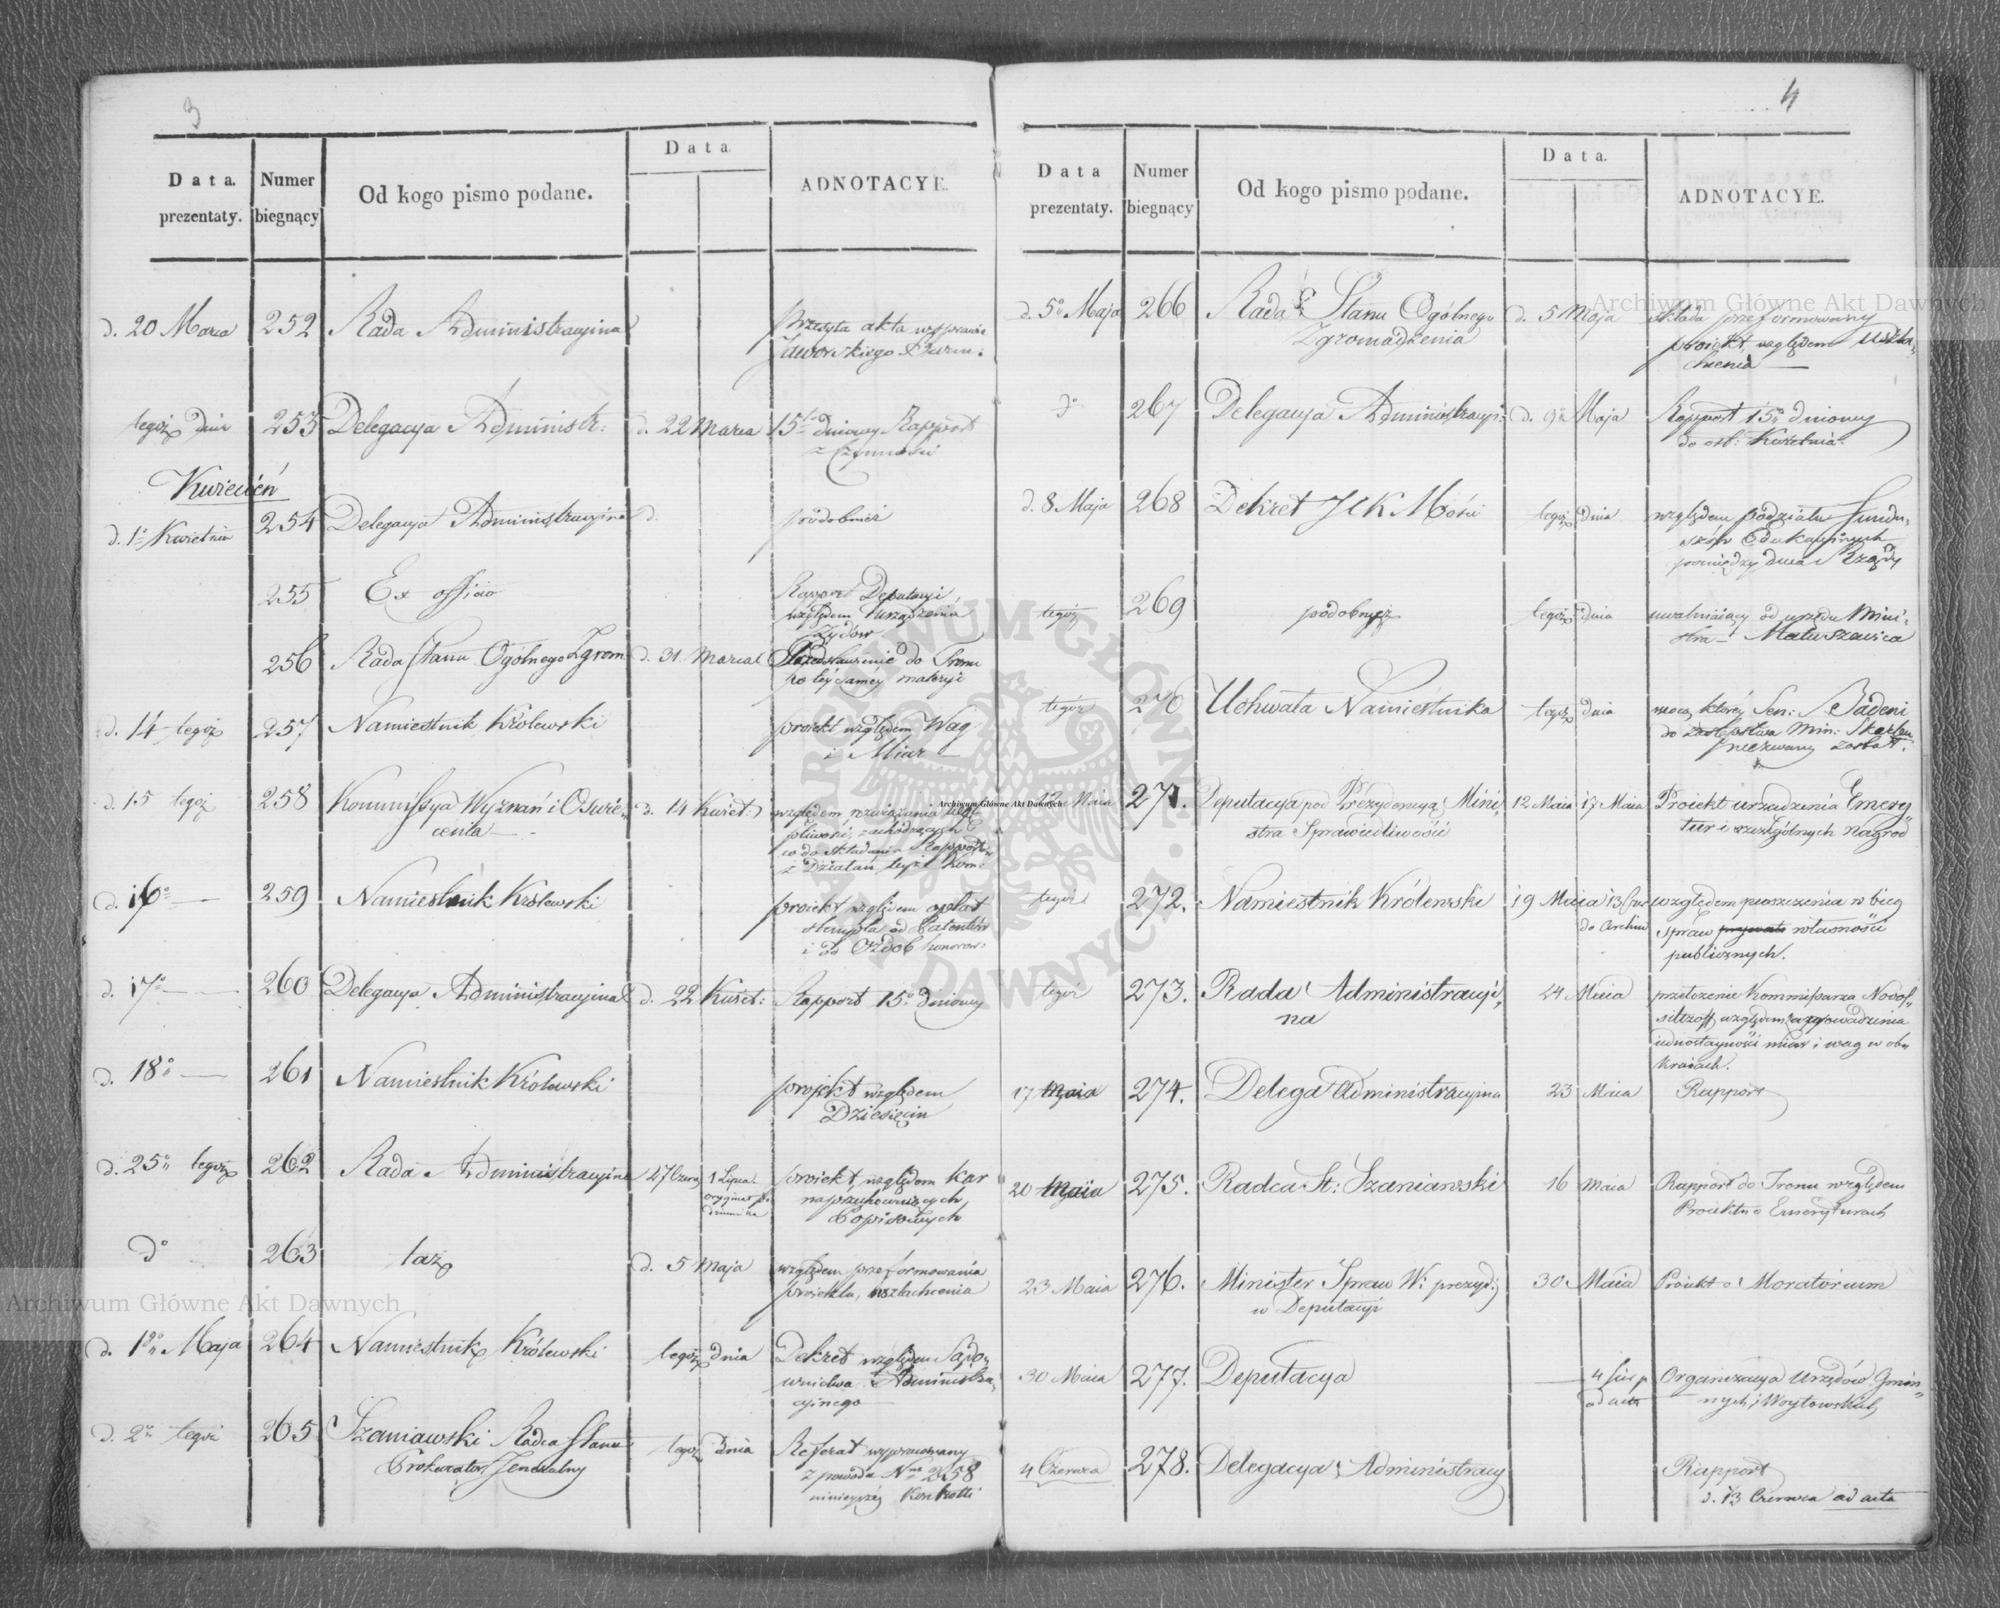 3
Data. prezentaty.
Numer biegnący
Od kogo pismo podane.
Data
ADNOTACYE.
d. 20 Marca 252 Rada Administracyina przesyła akta w sprawie
Jaworskiego
tegoż dnia 253 Delegacya Administr: d. 22 Marca 15o dniowy Rapport
z Czynności
Kwiecień
d. 1o Kwietnia 254 Delegacya Administracyina d. podobnież
255 Ex officio Rapport Deputacyi
względem urządzenia
Żydów
256 Rada Stanu Ogólnego Zgrom. d. 31 Marca Przedstawienie do Tronu
po téy samey materyi
d. 14 tegoż 257 Namiestnik Królewski proiekt względem Wag
i Miar
d. 15 tegoż 258 Kommissya Wyznań i Oświe- d. 14 Kwiet: względem rozwiązania wąt-
cenia
pliwości, zachodzących
co do składania Rapportów
z Działań teyże Kom:
d. 16o 259 Namiestnik Królewski proiekt względem opłat
stempla od Patentów
i od Ozdob honorow:
d. 17o 260 Delegacya Administracyina d. 22 Kwiet: Rapport 15o dniowy
d. 18o 261 Namiestnik Królewski projekt względem
Dziesięcin
d. 25o tegoż 262 Rada Administracyina 27 Czerw 1 Lipca proiekt względem kar
oryginał
dziennika
na przechowuiących
Popisowych
do 263 taż d. 5 Maja względem przeformowania
proiektu, uszlachcenia
d. 1o Maja 264 Namiestnik Królewski tegoż dnia Dekret względem Sądo-
wnictwa Administra-
cyinego
d. 2o tegoż 265 Szaniawski Radca Stanu tegoż dnia Referat wypracowany
Prokurator Jeneralny z powodu Nru 258
ninieyszéy Kontrolli
4
Data prezentaty.
Numer biegnący
Od kogo pismo podane.
Data.
ADNOTACYE.
d. 5o Maja 266 Rada Stanu Ogólnego d. 5 Maja składa przeformowany
Zgromadzenia
proiekt, względem uszla-
chcenia
do 267 Delegacya Administracyi: d. 9o Maja Rapport 15o dniowy
do ost: Kwietnia.
d. 8 Maja 268 Dekret JCK Mości tegoż dnia względem podziału fundu-
szów Edukacyinych
pomiędzy dwa Rządy
tegoż 269 podobnyż tegoż dnia uwalniaiący od urzędu Mini-
stra Matuszewica
tegoż 270 Uchwała Namiestnika tegoż dnia mocą któréy Sen: Badeni
do zastępstwa Min: Skarbu
wezwany został.
12 Maia 271. Deputacya pod Prezydencyą Mini- 12 Maia 17 Maia Proiekt urządzenia Emery-
stra Sprawiedliwości
tur i szczególnych nagrod
tegoż 272. Namiestnik Królewski 19 Maia 13 Czer względem puszczenia w bieg
do Archiw
spraw własności
publicznych.
tegoż 273. Rada Administracyi- 24 Maia przełożenie Kommissarza Novos-
na
siltzoff względem zaprowadzenia
iednostayności miar i wag w obu
kraiach.
17 Maia 274. Delega Administracyina 23 Maia Rapport
20 Maia 275. Radca St: Szaniawski 16 Maia Rapport do Tronu względem
Proiektu o Emeryturach
23 Maia 276. Minister Spraw W: prezyd: 30 Maia Proiekt o Moratorium
w Deputacyi
30 Maia 277. Deputacya 4 Sierp Organizacya Urzędów Gmin-
ad acta
nych i Woytowskich
4 Czerwca 278. Delegacya Administracy Rapport
d. 13 Czerwca ad acta
Archiwum Główne Akt Dawnych
Archiwum Główne Akt Dawnych
Archiwum Główne Akt Dawnych
ARCHIWUM GŁÓWNE AKT DAWNYCH